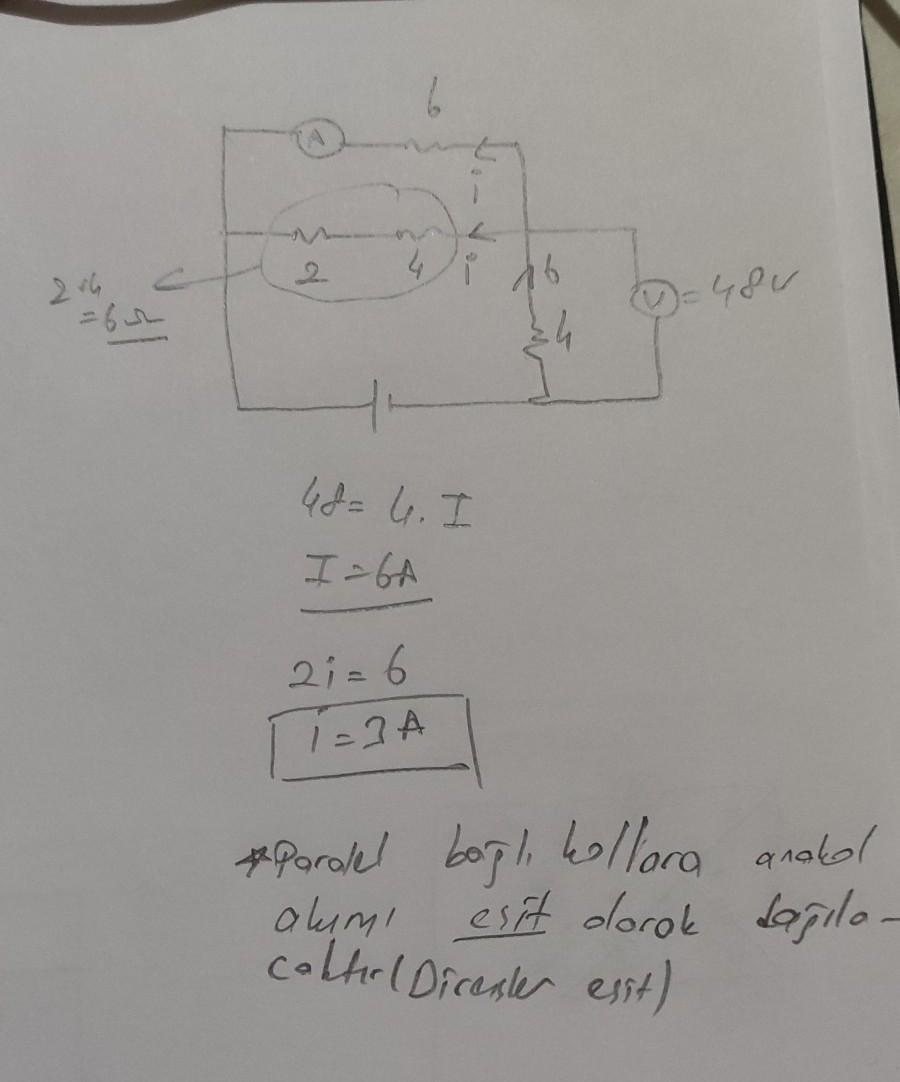 6
A
i
2 4 i 6
2+4
=6Ω
V = 48V
4
48 = 4. I
I = 6A
2i = 6
i = 3A
*Paralel bağlı kollara anakol
akımı eşit olarak dağıla-
caktır (Dirençler eşit)